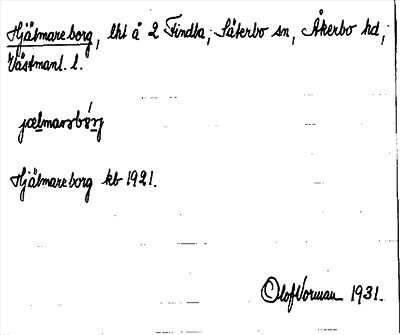 Hjälmareborg, lht å 2 Findla, Säterbo sn, Åkerbo hd,
Västmanl. l.
Hjälmareborg kb 1921.
Olof Vorman 1931.